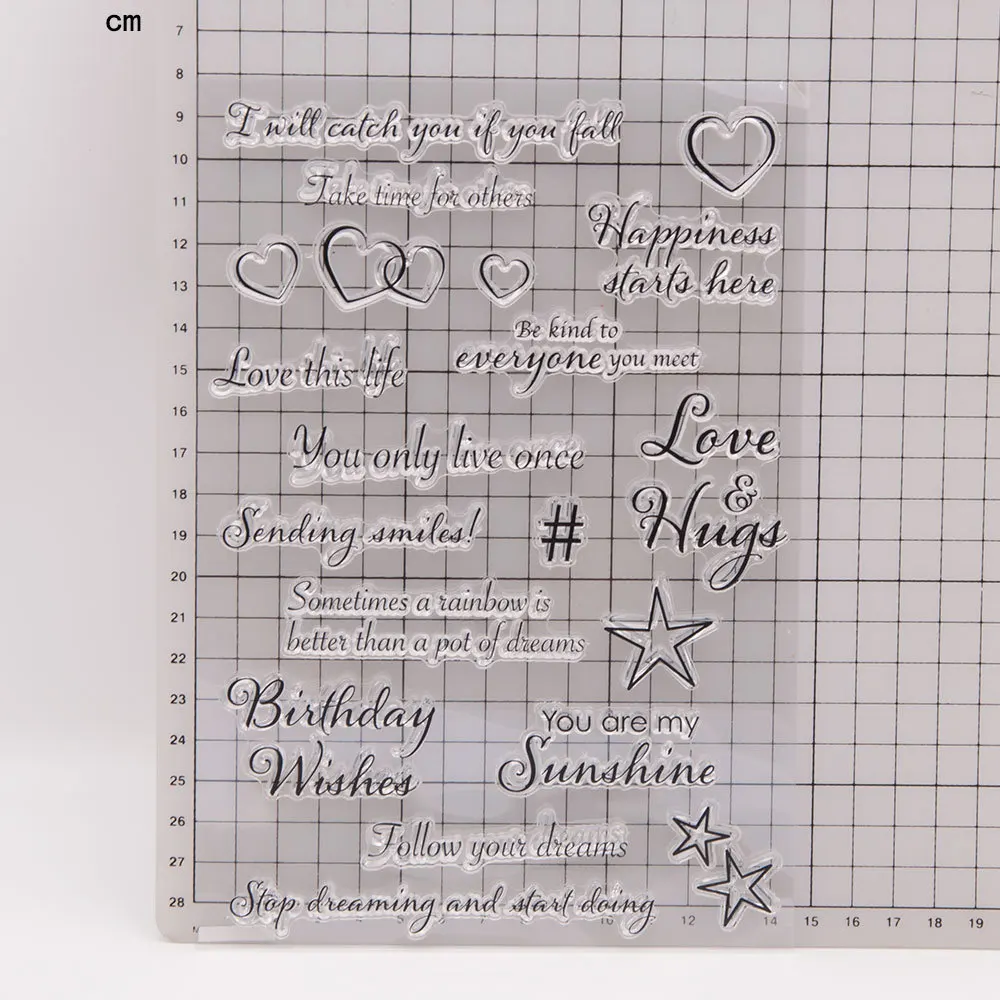 cm
7
8
9
10
11
12
13
14
15
16
17
18
19
20
21
22
23
24
25
26
27
28
I will catch you if you fall
Take time for others
Happiness
starts here
Be kind to
everyone you meet
Love this life
You only live once
Love
&
Hugs
Sending smiles!
#
Sometimes a rainbow is
better than a pot of dreams
Birthday
Wishes
You are my
Sunshine
Follow your dreams
Stop dreaming and start doing
5 7 10 12 14 15 17 18 19